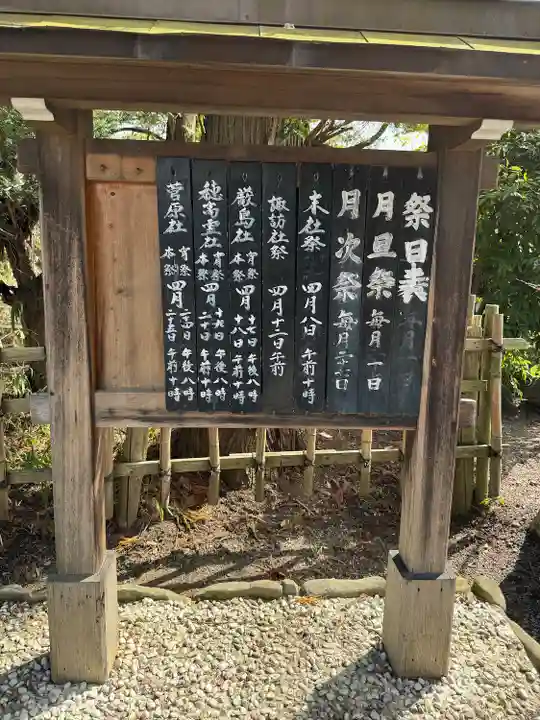 祭日表
月旦祭 毎月一日
月次祭 毎月
末社祭 四月八日 午前十時
諏訪社祭 四月十二日 午前
厳島社
宵祭 四月十七日 午後八時
本祭 四月十八日 午前十時
穂高霊社
宵祭 四月十九日 午後八時
本祭 四月二十日 午前十時
菅原社
宵祭 四月二十四日 午後八時
本祭 四月二十五日 午前十時